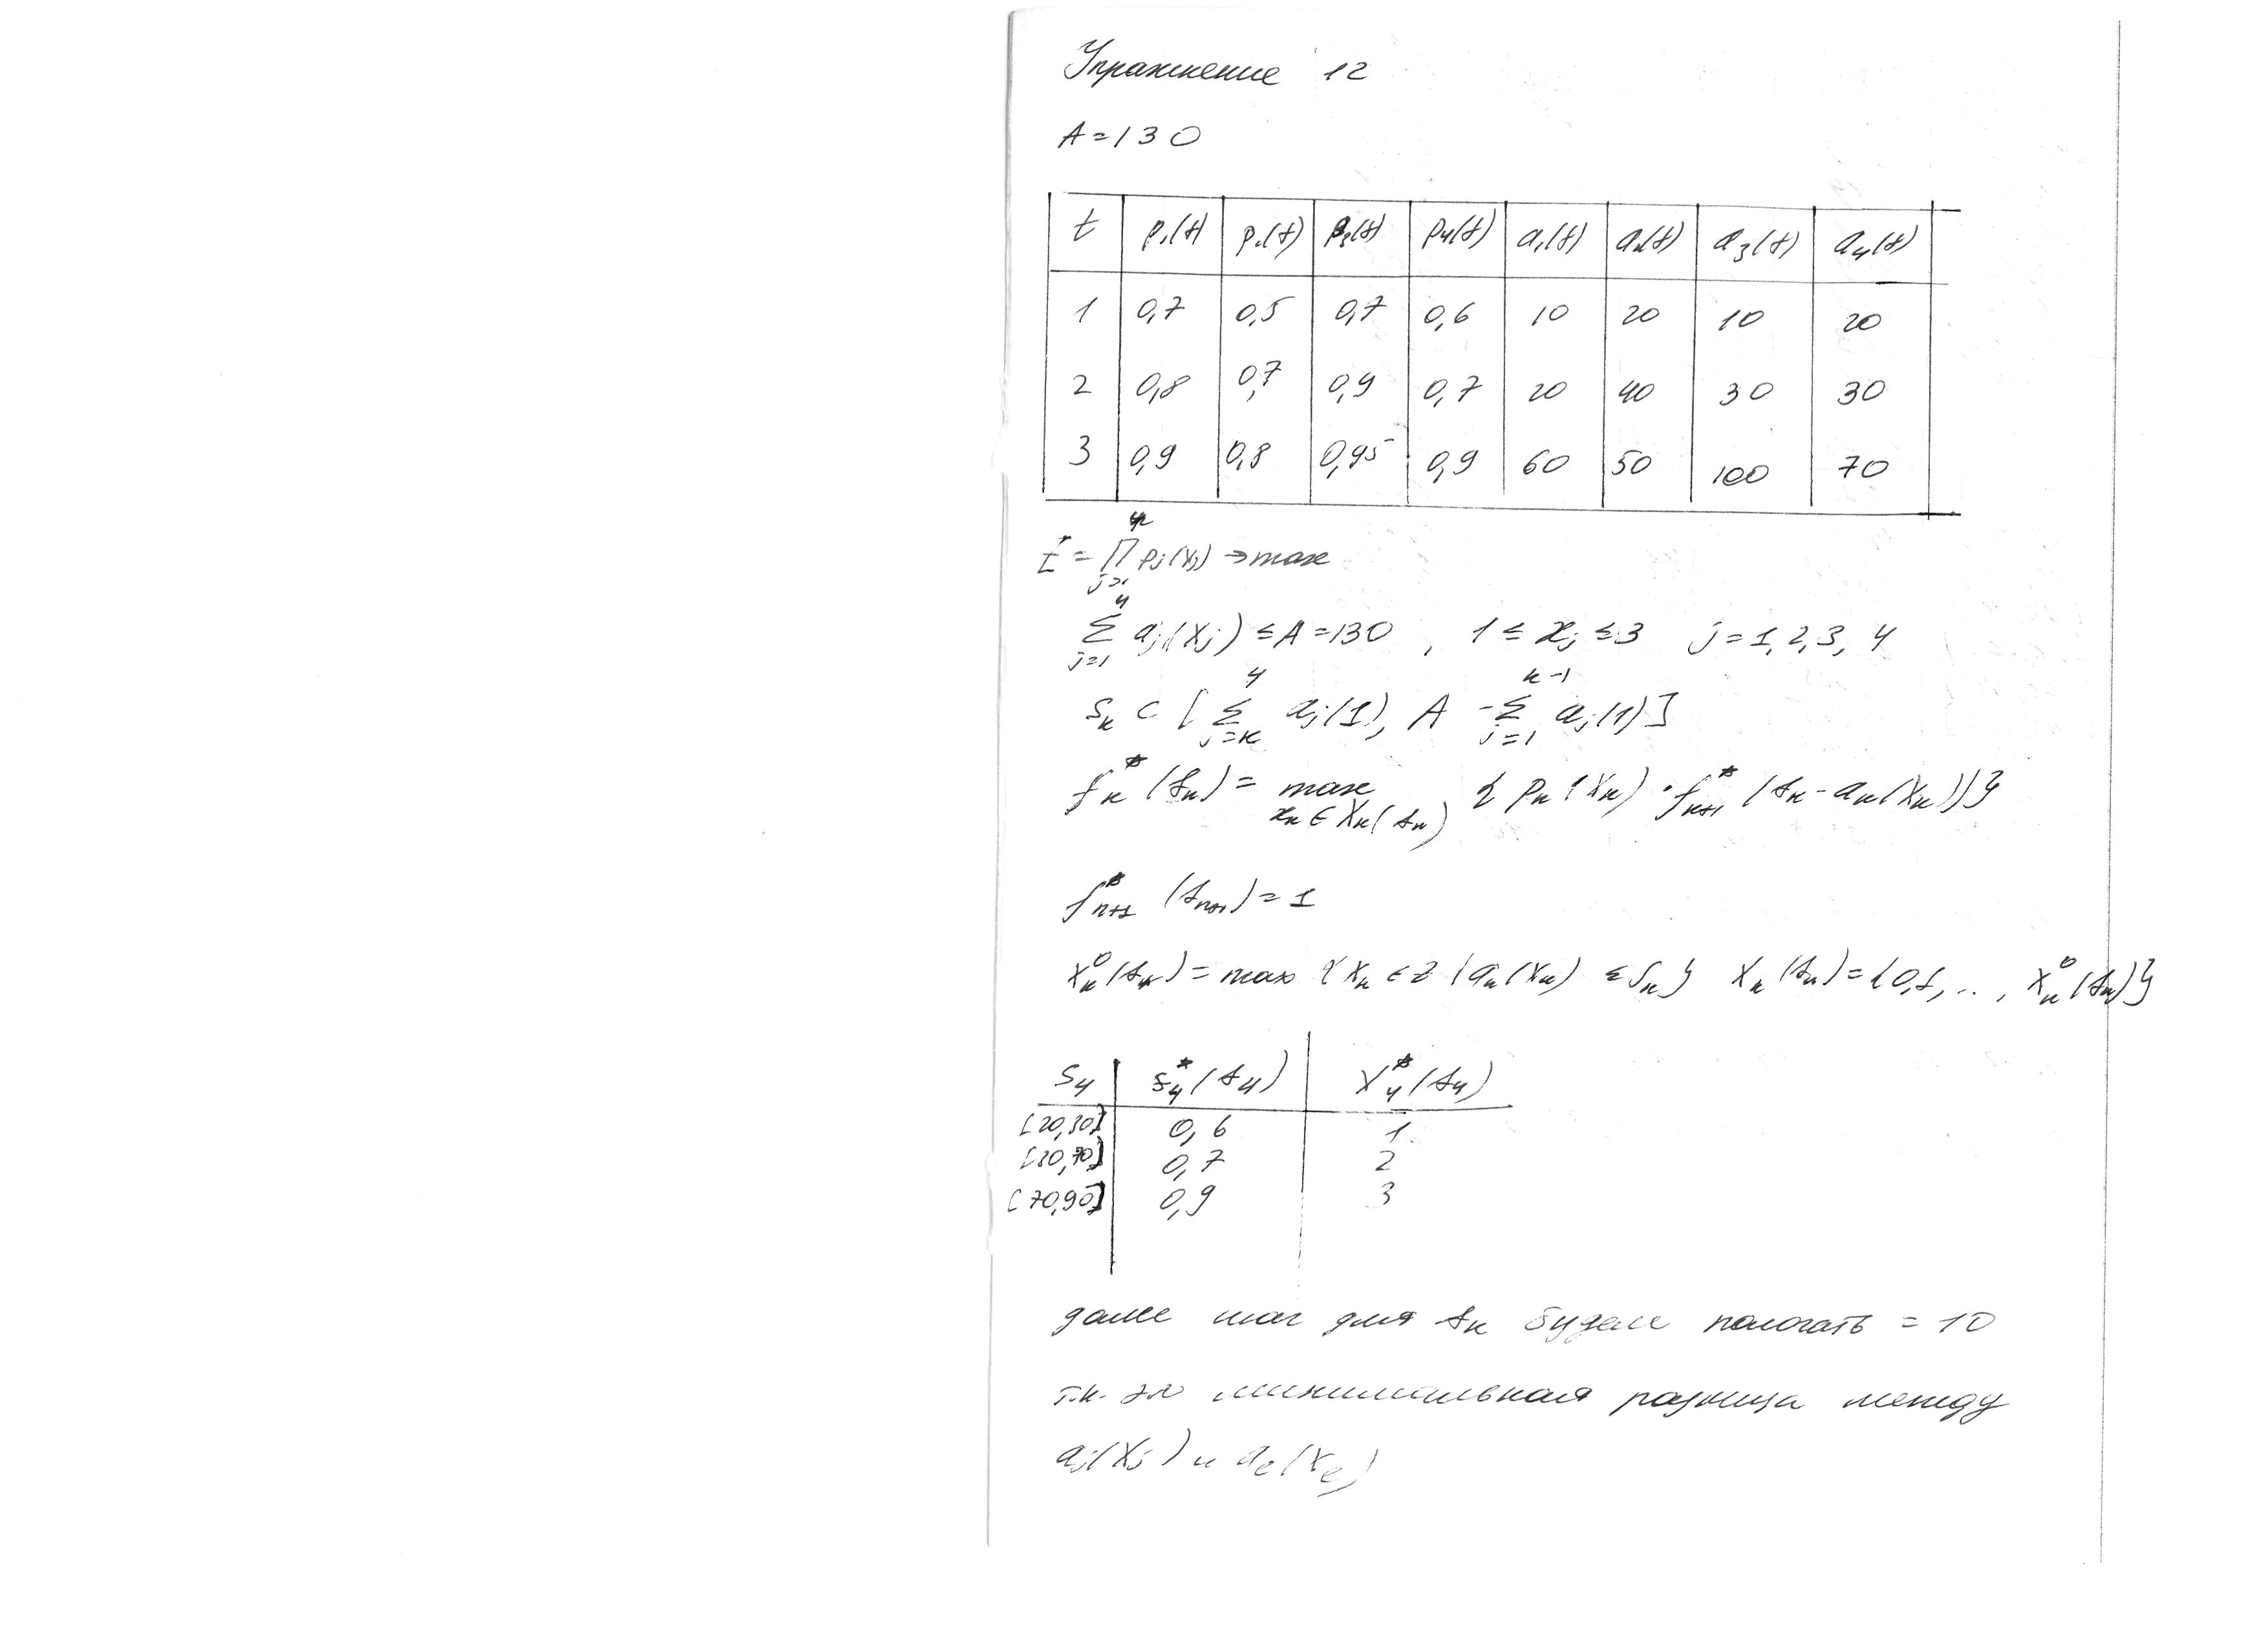 Упражнение 12
A = 130
t p₁(t) p₂(t) p₃(t) p₄(t) a₁(t) a₂(t) a₃(t) a₄(t)
1 0,7 0,5 0,7 0,6 10 20 10 20
2 0,8 0,7 0,9 0,7 20 40 30 30
3 0,9 0,8 0,95 0,9 60 50 100 70
= ∏_{j=1}^{4} p_j(x_j) → max
∑_{j=1}^{4} a_j(x_j) ≤ A = 130 , 1 ≤ x_j ≤ 3 j = 1, 2, 3, 4
S_k ⊂ [∑_{j=k}^{4} a_j(1), A - ∑_{j=1}^{k-1} a_j(1)]
f_k^*(s_k) = max_{x_k ∈ X_k(s_k)} { p_k(x_k) · f_{k+1}^*(s_k - a_k(x_k)) }
f_{n+1}^*(s_{n+1}) = 1
x_k^0(s_k) = max {x_k ∈ Z | a_k(x_k) ≤ s_k} X_k(s_k) = {0, 1, .. , x_k^0(s_k)}
S₄ f₄^*(s₄) x₄^*(s₄)
[20,30] 0,6 1
[30,70] 0,7 2
[70,90] 0,9 3
далее шаг для s_k будем полагать = 10
т.к. это минимальная разница между
a_j(x_j) и a_e(x_e)